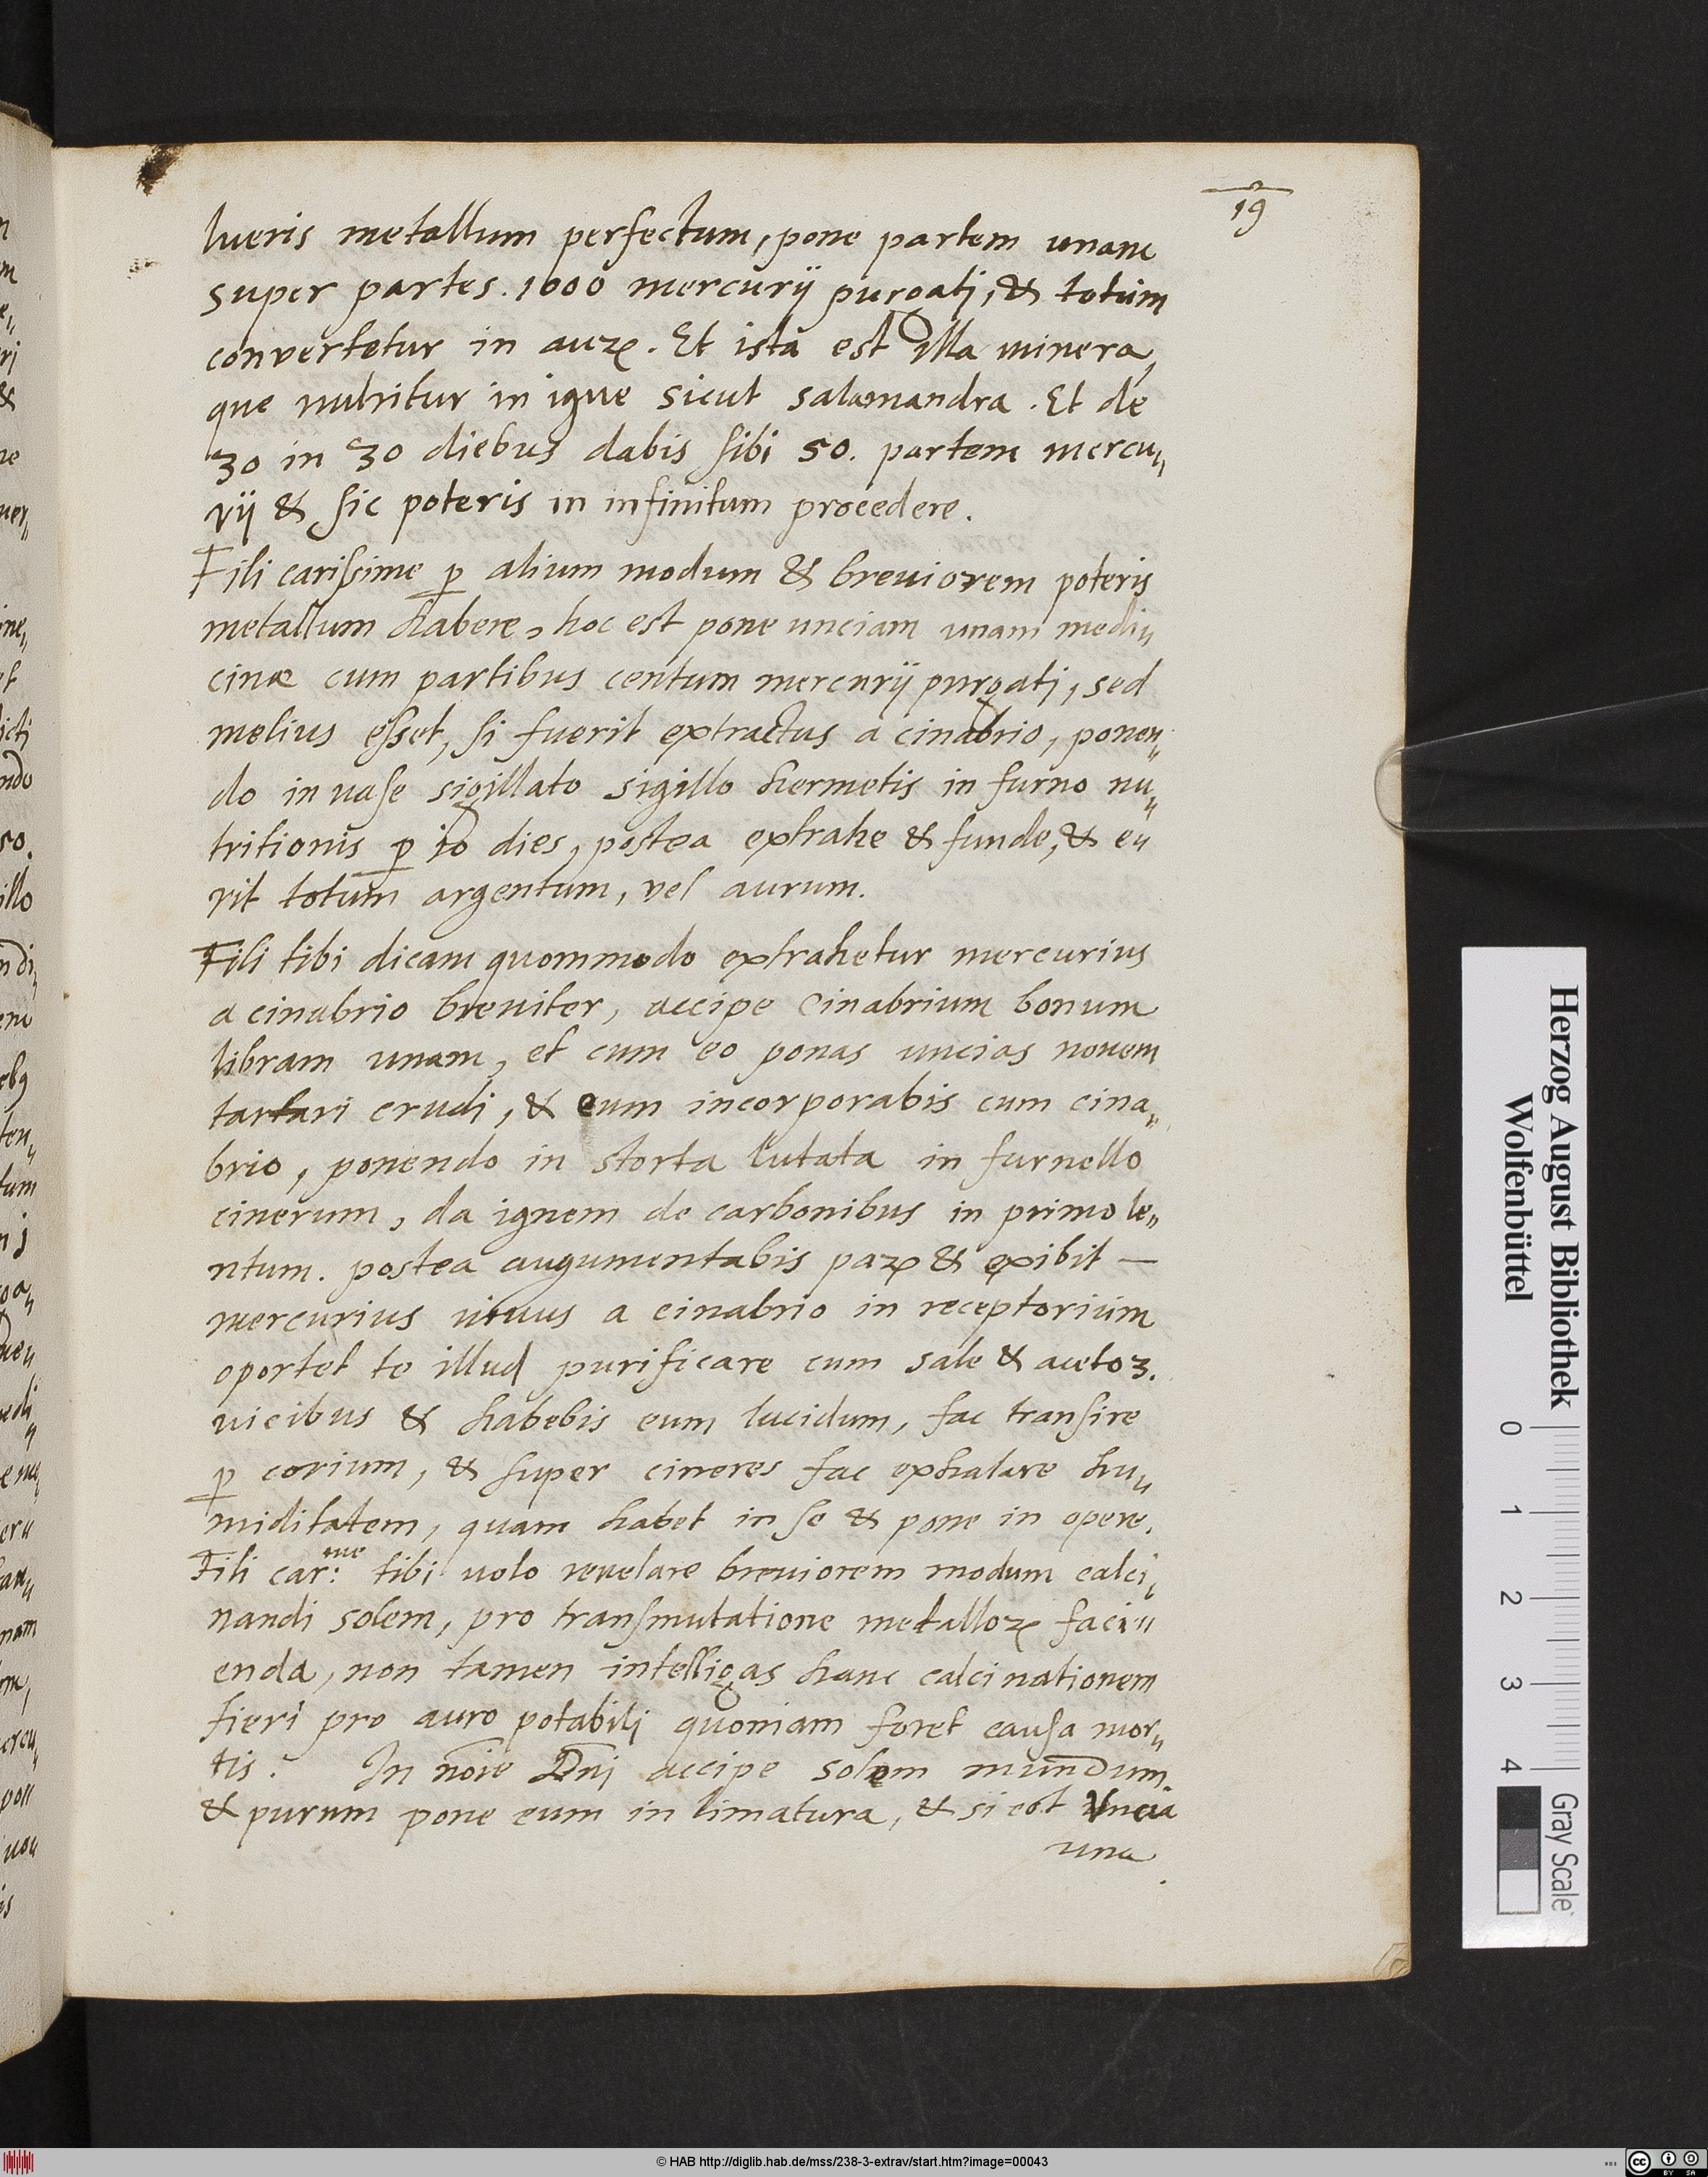 19
lueris metallum perfectum, pone partem unam
super partes . 1000 mercurij purgatj, & totum
convertetur in auꝝ. Et ista est illa minera,
que nutritur in igne sicut salamandra . Et de
30 in 30 diebus dabis sibi 50. partem mercu„
rij & sic poteris in infinitum procedere.
Fili carissime ꝑ alium modum & breuiorem poteris
metallum habere, hoc est pone unciam unam medi„
cinæ cum partibus centum mercurij purgatj, sed
melius esset, si fuerit extractus a cinabrio, ponen„
do in uase sigillato sigillo hermetis in furno nu„
tritionis ꝑ 10 dies, postea extrahe & funde, & e„
rit totum argentum, vel aurum.
Fili tibi dicam quommodo extrahetur mercurius
a cinabrio breuiter, accipe Cinabrium bonum
libram unam, et cum eo ponas uncias nouem
tartari crudi, & eum incorporabis cum cina„
brio, ponendo in storta lutata in furnello
cinerum, da ignem de carbonibus in primo le„
ntum. postea augumentabis paꝝ & exibit —
mercurius uiuus a cinabrio in receptorium
oportet te illud purificare cum sale & aceto 3.
uicibus & habebis eum lucidum, fac transire
ꝑ corium, & super cineres fac exhalare hu„
miditatem, quam habet in se & pone in opere.
Fili car:me tibi uolo reuelare breuiorem modum calci„
nandi solem, pro transmutatione metalloꝝ faci„
enda, non tamen intelligas hanc calcinationem
fieri pro auro potabili quoniam foret causa mor„
tis. In noĩe Dñi accipe solem mundum
& purum pone eum in limatura, & si est Vncia
una
Herzog August Bibliothek
Wolfenbüttel
0 1 2 3 4
Gray Scale
© HAB http://diglib.hab.de/mss/238-3-extrav/start.htm?image=00043